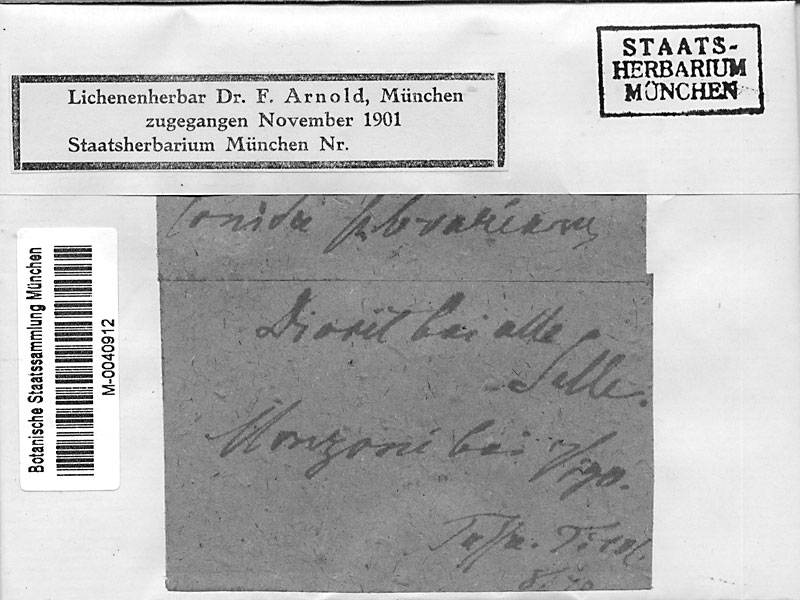 STAATS-
HERBARIUM
MÜNCHEN
Lichenenherbar Dr. F. Arnold, München
zugegangen November 1901
Staatsherbarium München Nr.
Botanische Staatssammlung München
M-0040912
Diorit bei alle
Selle.
Monzoni bei Vigo.
Tirol.